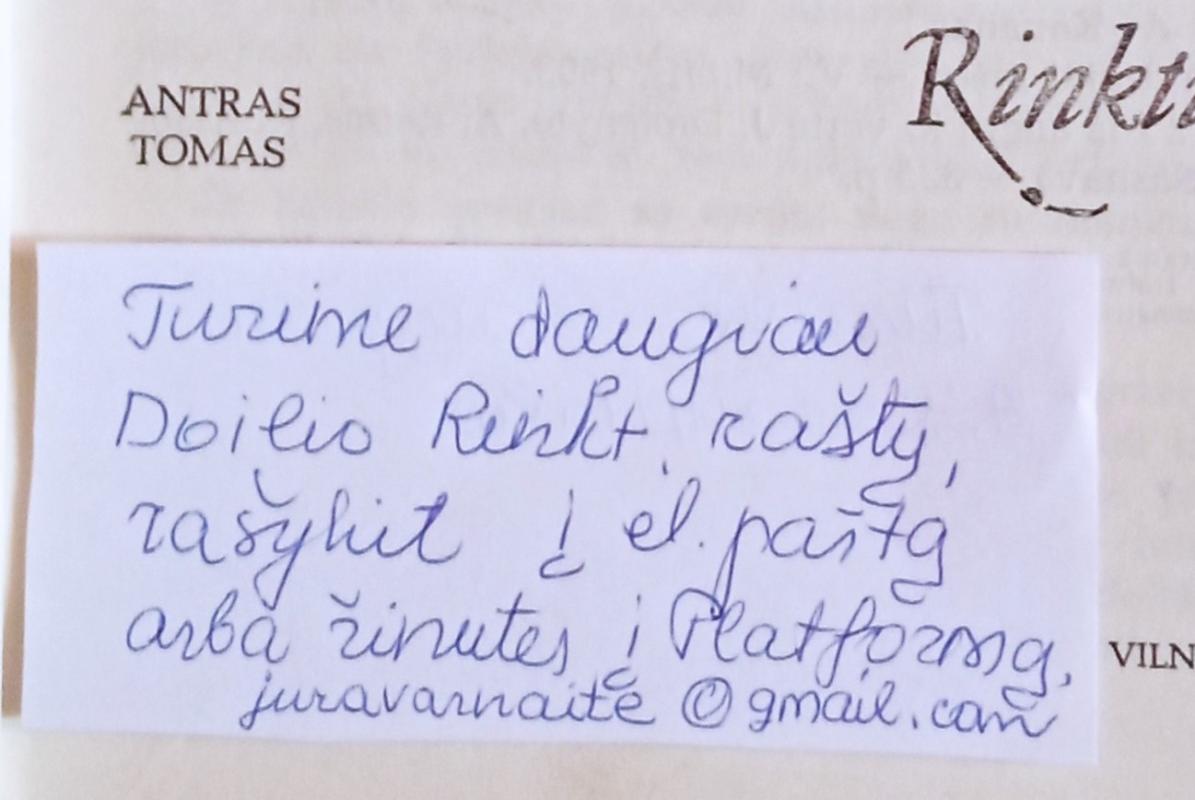 ANTRAS
TOMAS
Rinkti
Turime daugiau
Doilio Rinkt. raštų,
rašykit į el. paštą
arba žinutes į Platformą,
juravarnaite @ gmail.com
VILN